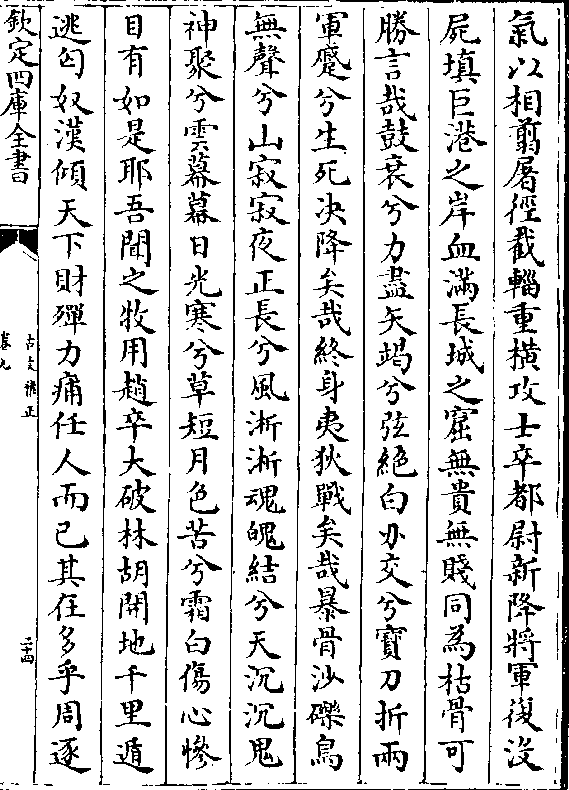 氣以相翦屠徑截輜重橫攻士卒都尉新降將軍復沒
屍填巨港之岸血滿長城之窟無貴無賤同為枯骨可
勝言哉鼓衰兮力盡矢竭兮弦絕白刃交兮寶刀折兩
軍蹙兮生死決降矣哉終身夷狄戰矣哉暴骨沙礫鳥
無聲兮山寂寂夜正長兮風淅淅魂魄結兮天沉沉鬼
神聚兮雲幕幕日光寒兮草短月色苦兮霜白傷心慘
目有如是耶吾聞之牧用趙卒大破林胡開地千里遁
逃匈奴漢傾天下財殫力痛任人而已其在多乎周逐
欽定四庫全書
古文雅正
卷九
二十四